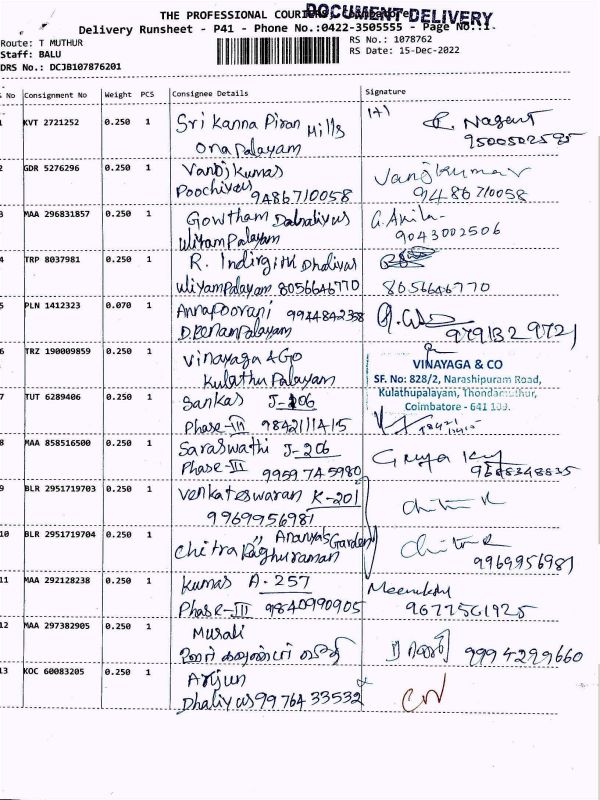 THE PROFESSIONAL COURIERS, Coimbatore
DOCUMENT DELIVERY
Delivery Runsheet - P41 - Phone No.:0422-3505555 - Page No.:1
Route: T MUTHUR
RS No.: 1078762
Staff: BALU
RS Date: 15-Dec-2022
DRS No.: DCJB107876201
S No Consignment No Weight PCS Consignee Details Signature
1 KVT 2721252 0.250 1 Sri Kanna Piran Mills
Onapalayam
9500502595
2 GDR 5276296 0.250 1 Vanojkumar Vanojkumar
Poochiyur 9486710058 9486710058
3 MAA 296831857 0.250 1 Gowtham Dhaliyur
Uliyampalayam 9043002506
4 TRP 8037981 0.250 1 R. Dhaliyur
Uliyampalayam 8056646770 8056646770
5 PLN 1412323 0.070 1 Annapoorani 9944842358
9791329721
6 TRZ 190009859 0.250 1 Vinayaga & Co
Kulathupalayam
VINAYAGA & CO
SF. No: 828/2, Narashipuram Road,
Kulathupalayam, Thondamuthur,
Coimbatore - 641 109.
7 TUT 6289406 0.250 1 Sankar J-206
Phase-III 9842111415
8 MAA 858516500 0.250 1 Saraswathi J-206
Phase-III 9959745980 9688348835
9 BLR 2951719703 0.250 1 Venkateswaran K-201
9969956981
10 BLR 2951719704 0.250 1 " Ananya's Garden
Chitra Raghuraman Chitra R
9969956981
11 MAA 292128238 0.250 1 Kumar A-257
Phase-III 9840990905 9677561925
12 MAA 297382905 0.250 1 Murali
9994299660
13 KOC 60083205 0.250 1 Arjun
Dhaliyur 9976433532